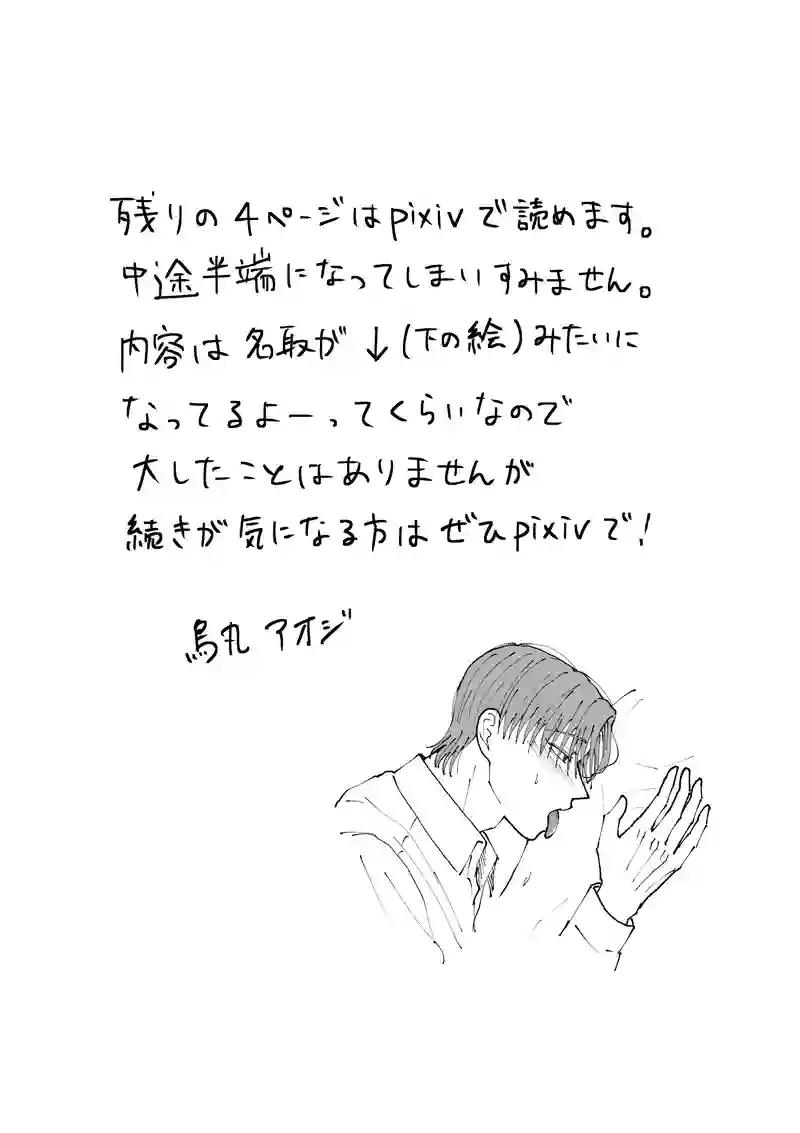 残りの4ページはpixivで読めます。
中途半端になってしまいすみません。
内容は名取が↓(下の絵)みたいに
なってるよーってくらいなので
大したことはありませんが
続きが気になる方はぜひpixivで!
烏丸アオジ